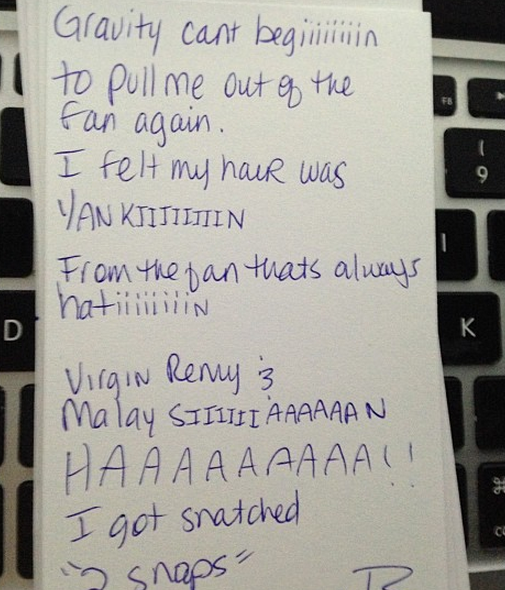 Gravity cant begiiiiiiiin
to pull me out of the
fan again.
I felt my haiR was
YANKIIIIIIIIN
From the fan thats always
hatiiiiiiiiiN
Virgin Remy &
Malay SIIIIIIAAAAAAN
HAAAAAAAAAA!!
I got snatched
"2 snaps"
B
D
F8
(
9
K
⌘